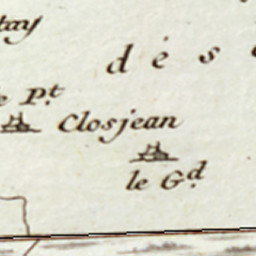 tay
dés
le P.t
Closjean
le G.d